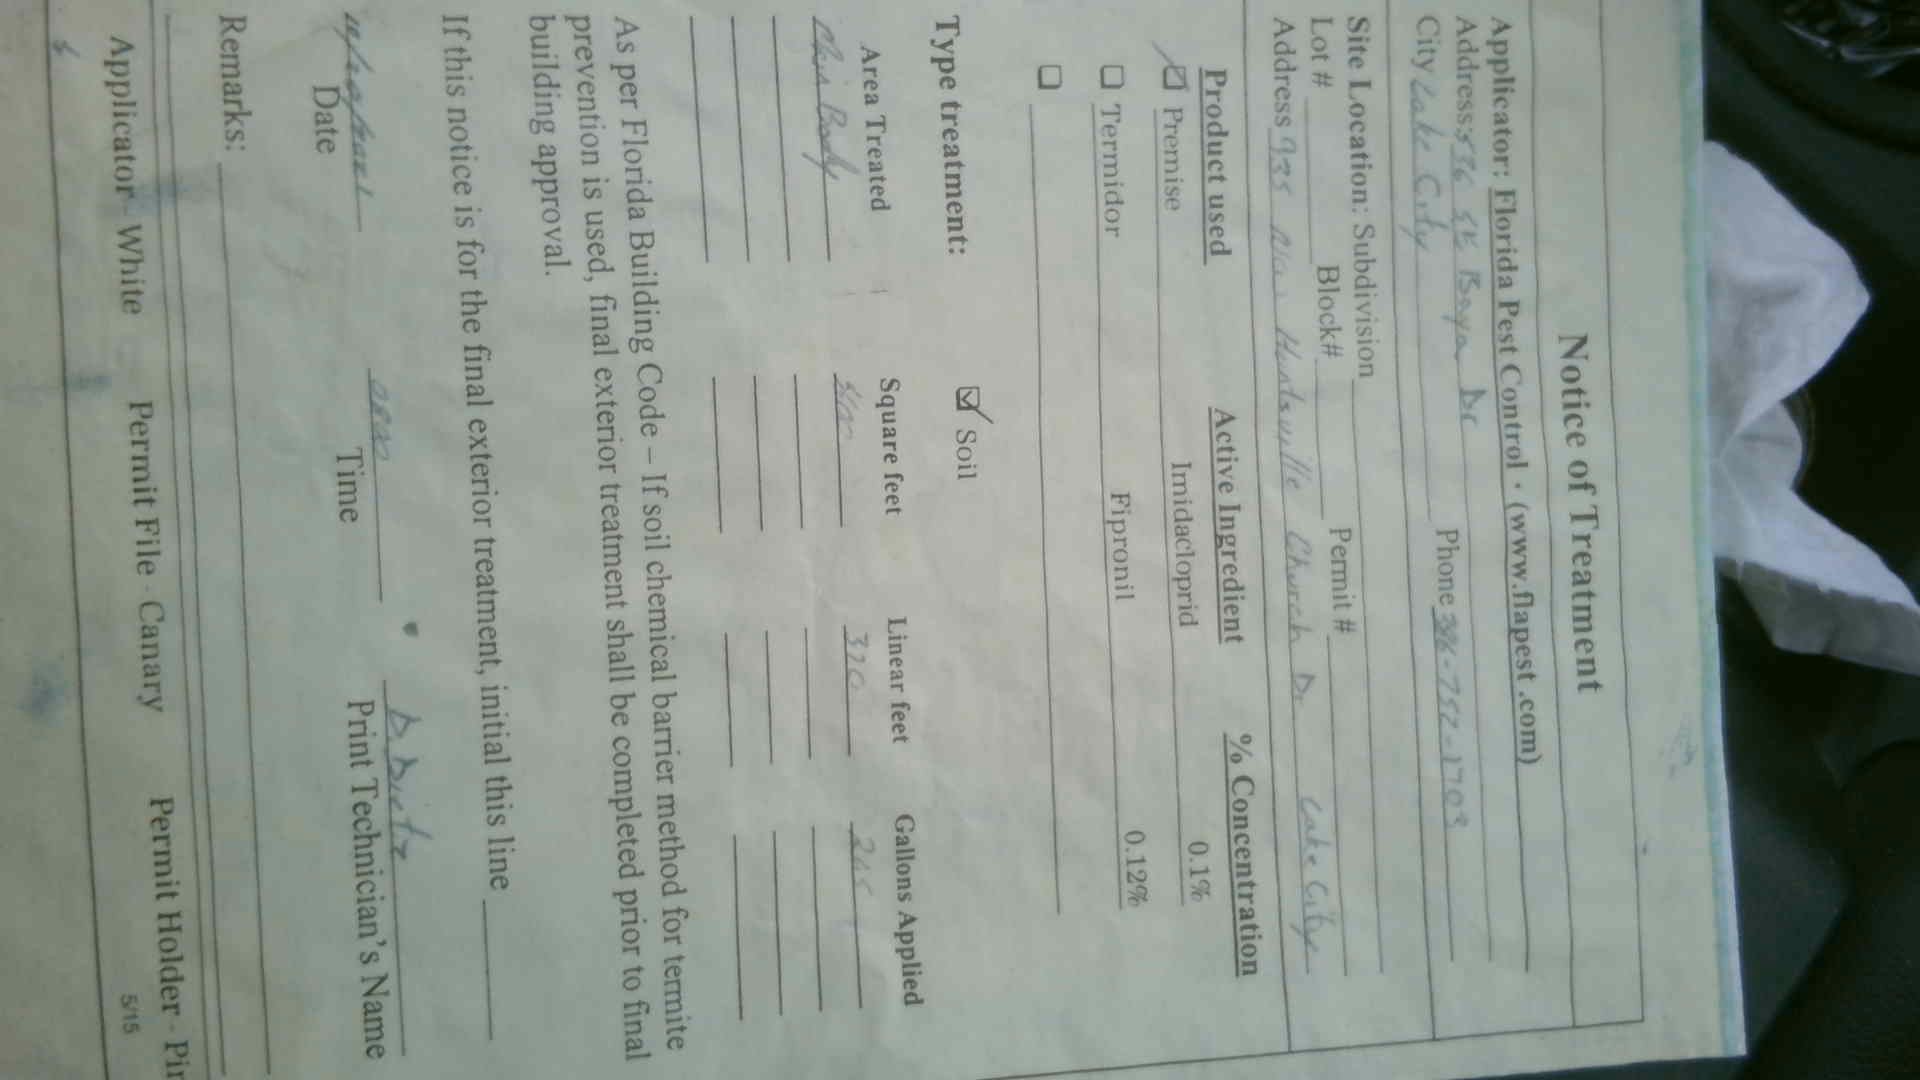 Notice of Treatment
Applicator: Florida Pest Control · (www.flapest.com)
Address: 536 SE Baya Dr
City Lake City Phone 386-752-1703
Site Location: Subdivision
Lot # Block# Permit #
Address 935 Huntsville Church Dr Lake City
Product used Active Ingredient % Concentration
☑ Premise Imidacloprid 0.1%
☐ Termidor Fipronil 0.12%
☐
Type treatment: ☑ Soil
Area Treated Square feet Linear feet Gallons Applied
Main Body 370
As per Florida Building Code – If soil chemical barrier method for termite
prevention is used, final exterior treatment shall be completed prior to final
building approval.
If this notice is for the final exterior treatment, initial this line
Date Time Print Technician's Name
Remarks:
Applicator - White Permit File - Canary Permit Holder - Pin
5/15